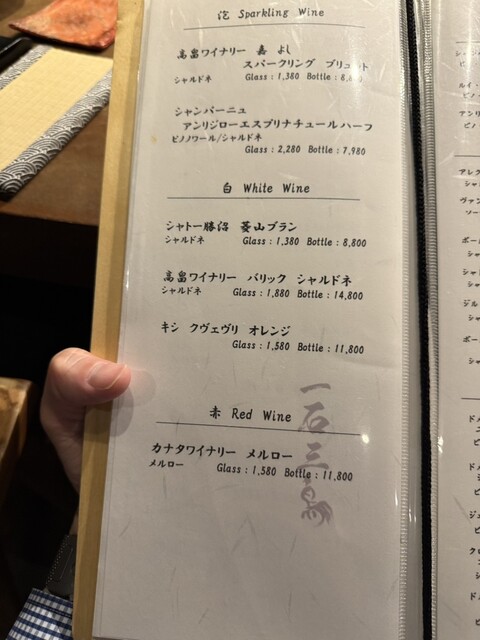 泡 Sparkling Wine
高畠ワイナリー 嘉 よし
スパークリング ブリュット
シャルドネ Glass : 1,380 Bottle :
シャンパーニュ
アンリジローエスプリナチュールハーフ
ピノノワール/シャルドネ
Glass : 2,280 Bottle : 7,980
白 White Wine
シャトー勝沼 菱山ブラン
シャルドネ Glass : 1,380 Bottle : 8,800
高畠ワイナリー バリック シャルドネ
シャルドネ Glass : 1,880 Bottle : 14,800
キシ クヴェヴリ オレンジ
Glass : 1,580 Bottle : 11,800
赤 Red Wine
カナタワイナリー メルロー
メルロー Glass : 1,580 Bottle : 11,800
一石三